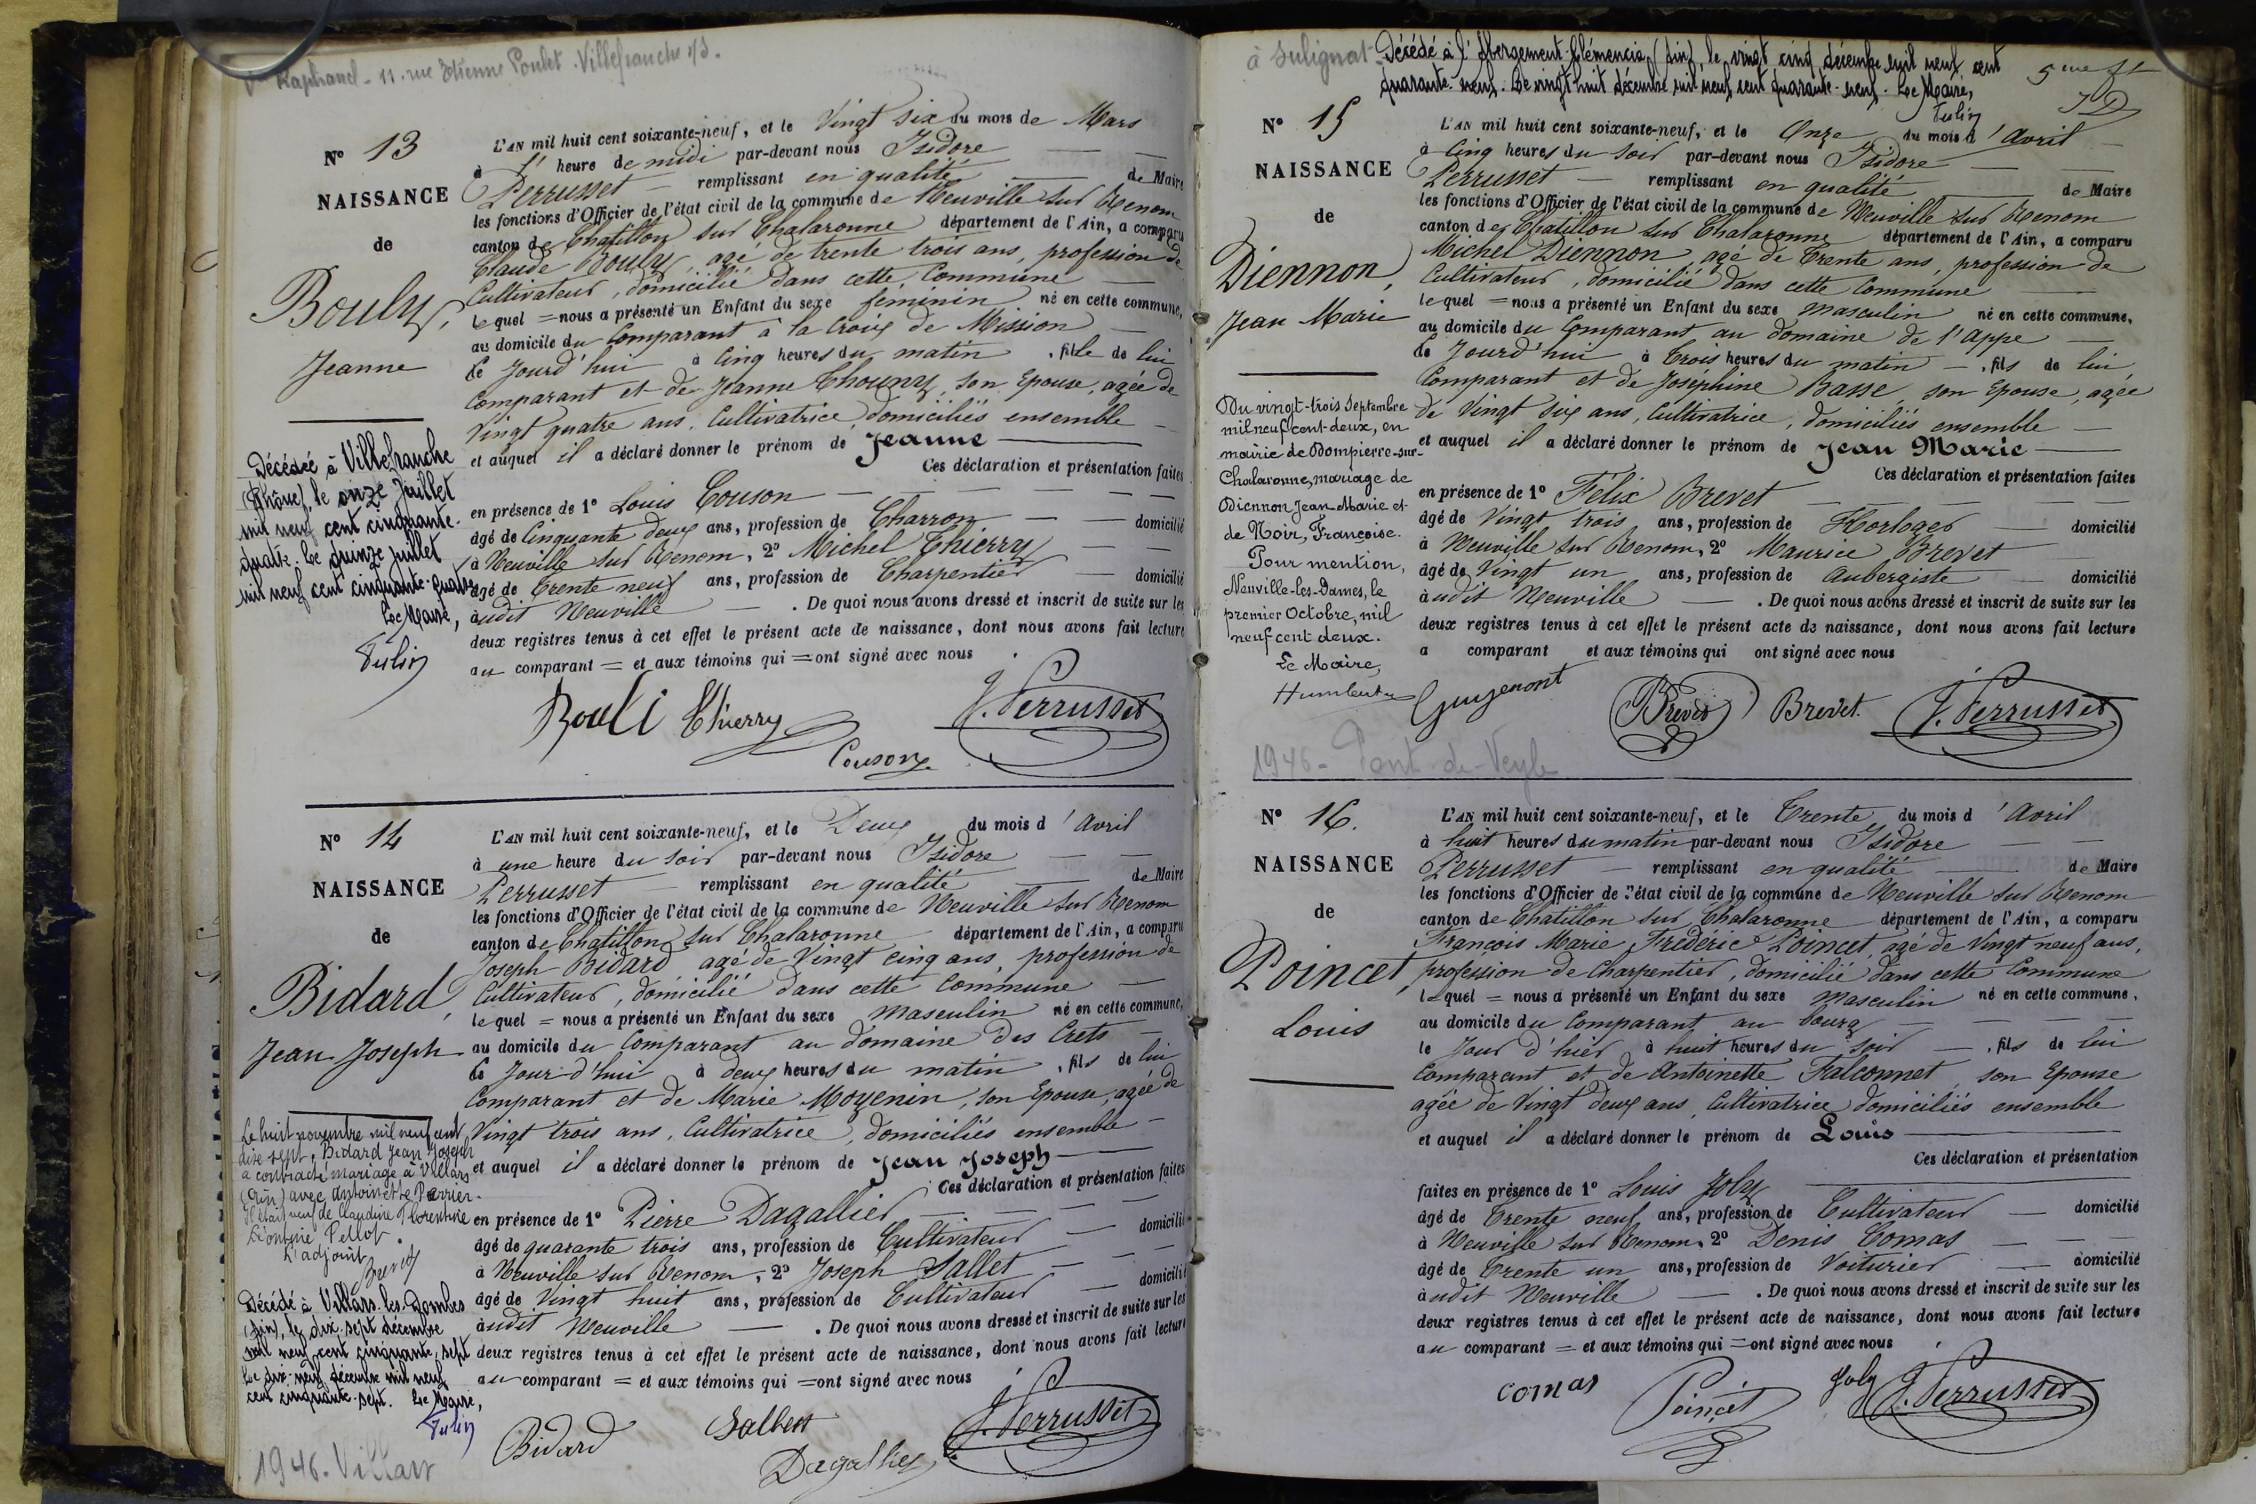 Raphanel - 11. rue Etienne Poulet. Villefranche s/S.
N° 13
NAISSANCE
de
Bouly,
Jeanne
Décédée à Villefranche
(Rhône), le onze Juillet
mil neuf cent cinquante-
quatre. Le quinze Juillet
mil neuf cent cinquante-quatre
Le Maire,
Tulin
L'AN mil huit cent soixante-neuf, et le Vingt six du mois de Mars
à 1' heure de midi par-devant nous Isidore
Perrusset remplissant en qualité de Maire
les fonctions d'Officier de l'état civil de la commune de Neuville sur Renom
canton de Chatillon sur Chalaronne département de l'Ain, a comparu
Claude Bouly, agé de trente trois ans, profession de
Cultivateur, domicilié dans cette Commune
lequel = nous a présenté un Enfant du sexe féminin né en cette commune,
au domicile du Comparant à la Croix de Mission
le Jourd'hui à Cinq heures du matin, fille de lui
Comparant et de Jeanne Chouny, son Epouse, agée de
Vingt quatre ans, Cultivatrice, domiciliés ensemble
et auquel il a déclaré donner le prénom de Jeanne
Ces déclaration et présentation faites
en présence de 1° Louis Couson
âgé de Cinquante deux ans, profession de Charron domicilié
à Neuville sur Renom, 2° Michel Thierry
âgé de Trente neuf ans, profession de Charpentier domicilié
audit Neuville . De quoi nous avons dressé et inscrit de suite sur les
deux registres tenus à cet effet le présent acte de naissance, dont nous avons fait lecture
au comparant = et aux témoins qui = ont signé avec nous
Bouli Thierry J. Perrusset
Couson
N° 14
NAISSANCE
de
Bidard,
Jean Joseph
Le huit novembre mil neuf cent
dix sept, Bidard Jean Joseph
a contracté mariage à Villars
(Ain) avec Antoinette Perrier.
Il était veuf de Claudine Florentine
Léontine Pellot.
L'adjoint
Brevet
Décédé à Villars-les-Dombes
(Ain), le dix-sept décembre
mil neuf cent cinquante-sept
Le dix-neuf décembre mil neuf
cent cinquante-sept. Le Maire,
Tulin
1946. Villars
L'AN mil huit cent soixante-neuf, et le Deux du mois d'Avril
à une heure du soir par-devant nous Isidore
Perrusset remplissant en qualité de Maire
les fonctions d'Officier de l'état civil de la commune de Neuville sur Renom
canton de Chatillon sur Chalaronne département de l'Ain, a comparu
Joseph Bidard agé de Vingt cinq ans, profession de
Cultivateur, domicilié dans cette Commune
lequel = nous a présenté un Enfant du sexe masculin né en cette commune,
au domicile du Comparant au domaine des Crets
le Jour d'hui à deux heures du matin, fils de lui
Comparant et de Marie Moyenin, son Epouse, agée de
Vingt trois ans, Cultivatrice, domiciliés ensemble
et auquel il a déclaré donner le prénom de Jean Joseph
Ces déclaration et présentation faites
en présence de 1° Pierre Dagallier
âgé de quarante trois ans, profession de Cultivateur domicilié
à Neuville sur Renom, 2° Joseph Sallet
âgé de Vingt huit ans, profession de Cultivateur domicilié
audit Neuville . De quoi nous avons dressé et inscrit de suite sur les
deux registres tenus à cet effet le présent acte de naissance, dont nous avons fait lecture
au comparant = et aux témoins qui = ont signé avec nous
Bidard Dagallier J. Perrusset
à Sulignat Décédé à l'Abergement-Clémencia (Ain), le vingt cinq décembre mil neuf cent
quarante-neuf. Le vingt huit décembre mil neuf cent quarante-neuf. Le Maire,
Tulin
N° 15
NAISSANCE
de
Diennon,
Jean Marie
Du vingt-trois Septembre
mil neuf cent-deux, en
mairie de Dompierre-sur-
Chalaronne, mariage de
Diennon Jean Marie et
de Noir, Françoise.
Pour mention,
Neuville-les-Dames, le
premier Octobre, mil
neuf cent deux.
Le Maire,
Humbert
L'AN mil huit cent soixante-neuf, et le Onze du mois d'Avril
à Cinq heures du soir par-devant nous Isidore
Perrusset remplissant en qualité de Maire
les fonctions d'Officier de l'état civil de la commune de Neuville sur Renom
canton de Chatillon sur Chalaronne département de l'Ain, a comparu
Michel Diennon, agé de Trente ans, profession de
Cultivateur, domicilié dans cette Commune
lequel = nous a présenté un Enfant du sexe masculin né en cette commune,
au domicile du Comparant au domaine de l'Appe
le Jourd'hui à Trois heures du matin, fils de lui
Comparant et de Joséphine Basse, son Epouse, agée
de Vingt six ans, Cultivatrice, domiciliés ensemble
et auquel il a déclaré donner le prénom de Jean Marie
Ces déclaration et présentation faites
en présence de 1° Félix Brevet
âgé de Vingt trois ans, profession de Horloger domicilié
à Neuville sur Renom, 2° Maurice Brevet
âgé de Vingt un ans, profession de Aubergiste domicilié
audit Neuville . De quoi nous avons dressé et inscrit de suite sur les
deux registres tenus à cet effet le présent acte de naissance, dont nous avons fait lecture
a comparant et aux témoins qui ont signé avec nous
Brevet Brevet. J. Perrusset
1946 - Pont-de-Veyle
N° 16.
NAISSANCE
de
Poincet,
Louis
L'AN mil huit cent soixante-neuf, et le Trente du mois d'Avril
à huit heures du matin par-devant nous Isidore
Perrusset remplissant en qualité de Maire
les fonctions d'Officier de l'état civil de la commune de Neuville sur Renom
canton de Chatillon sur Chalaronne département de l'Ain, a comparu
François Marie Frédéric Poincet, agé de Vingt neuf ans,
profession de Charpentier, domicilié dans cette Commune
lequel = nous a présenté un Enfant du sexe masculin né en cette commune,
au domicile du Comparant au bourg
le Jour d'hier à huit heures du soir, fils de lui
Comparant et de Antoinette Falconnet son Epouse
agée de Vingt deux ans, Cultivatrice domiciliés ensemble
et auquel il a déclaré donner le prénom de Louis
Ces déclaration et présentation
faites en présence de 1° Louis Joly
âgé de Trente neuf ans, profession de Cultivateur domicilié
à Neuville sur Renom, 2° Denis Comas
âgé de Trente un ans, profession de Voiturier domicilié
audit Neuville . De quoi nous avons dressé et inscrit de suite sur les
deux registres tenus à cet effet le présent acte de naissance, dont nous avons fait lecture
au comparant = et aux témoins qui = ont signé avec nous
comas Poincet Joly J. Perrusset